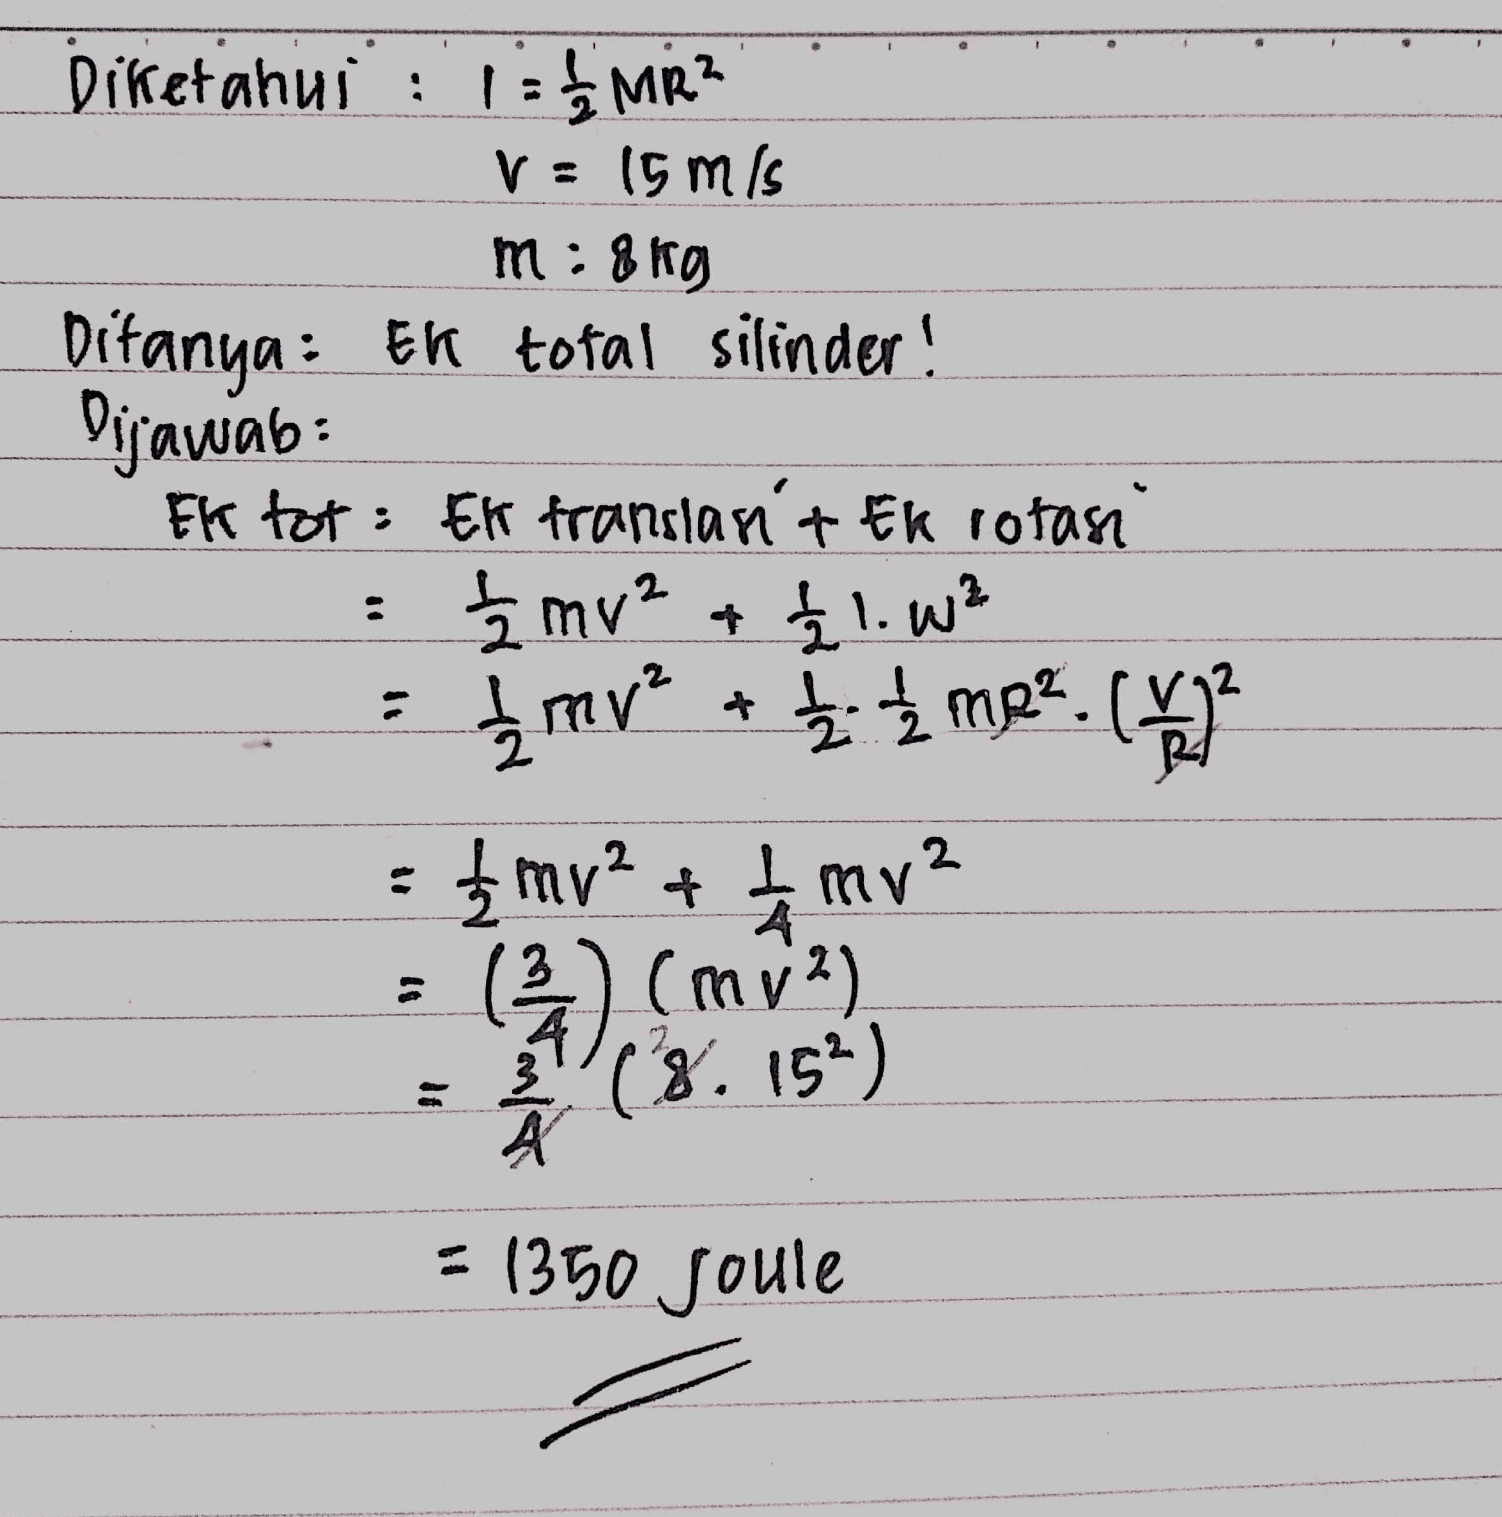 Diketahui : I = 1/2 MR²
v = 15 m/s
m : 8 kg
Ditanya : Ek total silinder !
Dijawab :
Ek tot : Ek translasi + Ek rotasi
= 1/2 mv² + 1/2 I. w²
= 1/2 mv² + 1/2 . 1/2 mR² . (V/R)²
= 1/2 mv² + 1/4 mv²
= (3/4) (mv²)
= 3/4 (8² . 15²)
= 1350 Joule